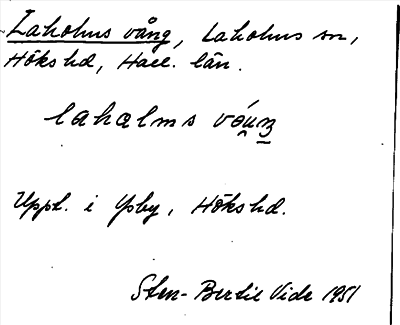 Laholms vång, Laholms sn,
Höks hd, Hall. län.
lahalms vóuŋ
Uppt. i Ysby, Höks hd.
Sten-Bertil Vide 1951